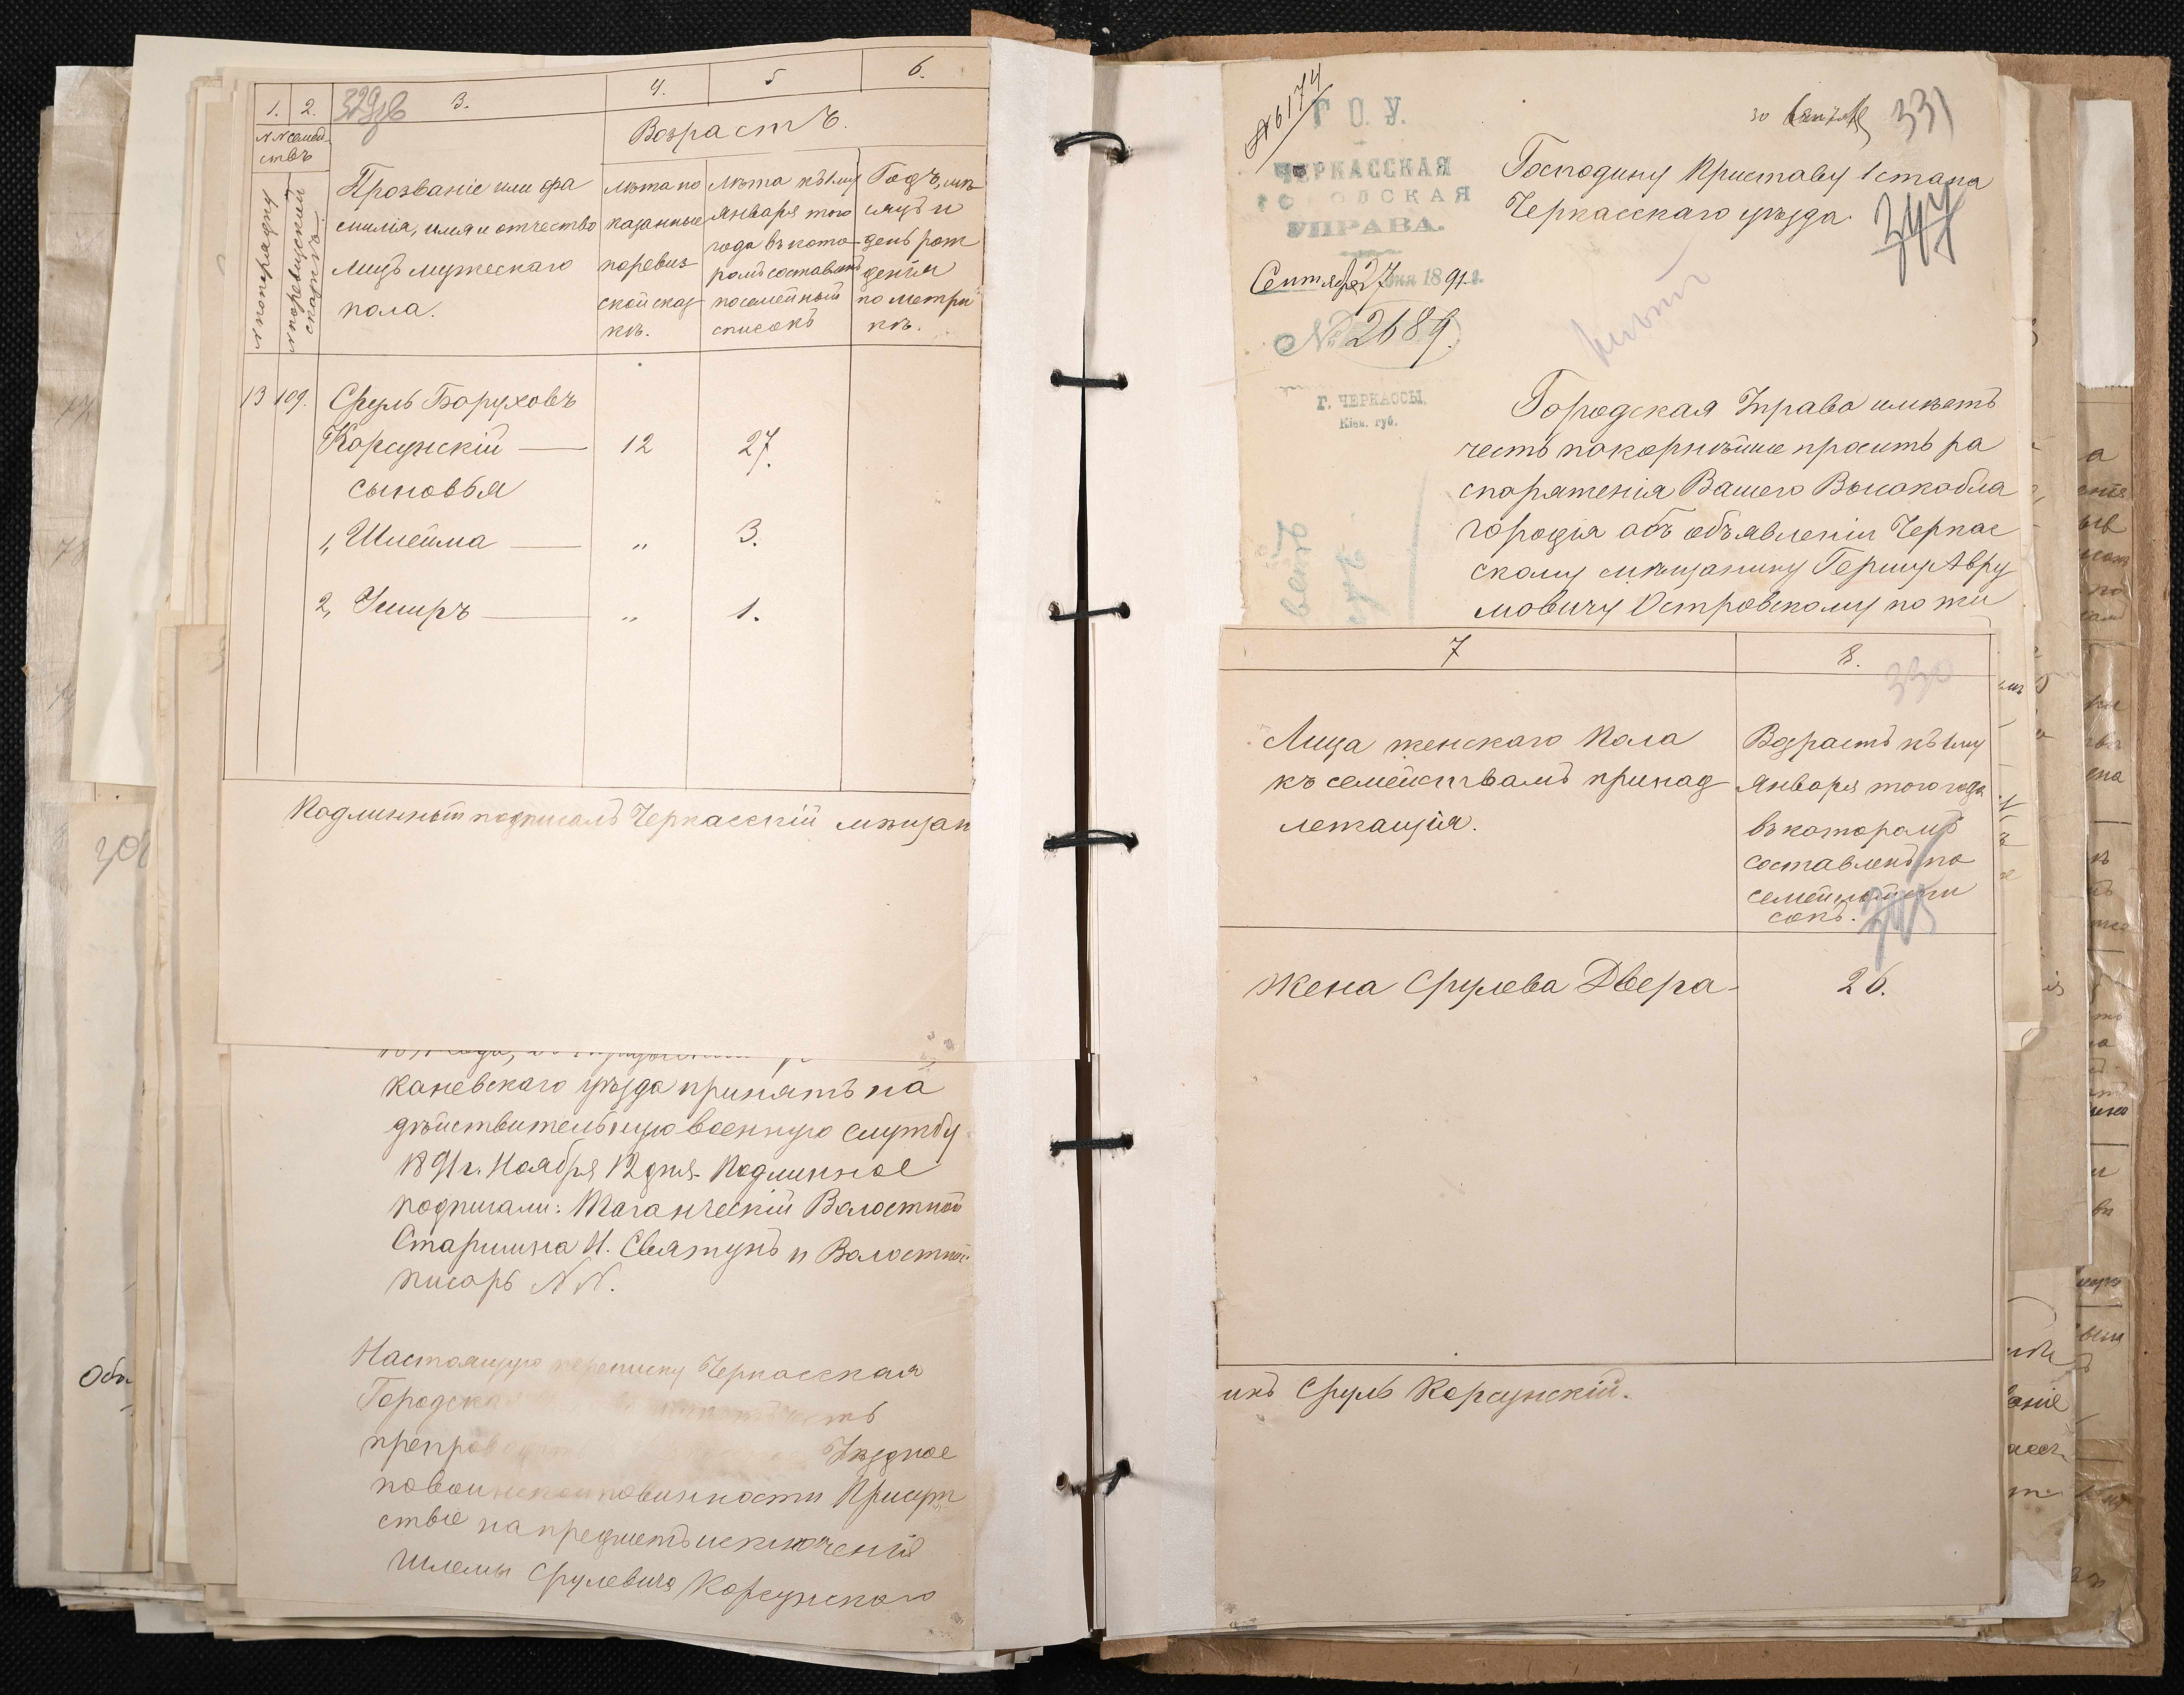 1. 2. 3. 4. 5 6.
329об
№№ семей-
ствъ
№ по призыву
№ по ревизской
сказкѣ
Возрастъ.
Прозваніе или фа
милія, имя и отчество
лицъ мужескаго
пола.
лѣта по
казанные
по ревиз-
ской сказ
кѣ.
Лѣта къ 1 му
Января того
года въ кото-
ромъ составленъ
посемейный
списокъ
Годъ, мѣ
сяцъ и
день рож
денія
по метри
кѣ.
13 109. Сруль Боруховъ
Корсунскій — 12 27.
сыновья
1, Шлейма — „ 3.
2, Ушеръ — „ 1.
Подлинный подписалъ Черкасскій мѣщан
каневскаго уѣзда принятъ на
дѣйствительную военную службу
1891 г. Ноября 12 дня. Подлинное
подписали: Таганческій Волостной
Старшина И. Святунъ и Волостной
писарь N N.
Настоящую переписку Черкасская
Городская
Уѣздное
по воинской повинности Присут
ствіе на предметъ исключенія
Шлемы Срулевича Корсунскаго
№ 6174
Г. О. У.
ЧЕРКАССКАЯ
ГОРОДСКАЯ
УПРАВА.
Сентября 27 дня 1891 г.
№ 2689.
Г. ЧЕРКАССЫ,
Кіев. губ.
30 331
Господину Приставу 1 стана
Черкасскаго уѣзда.
347
Городская Управа имѣетъ
честь покорнѣйше просить ра
споряженія Вашего Высокобла
городія объ объявленіи Черкас
скому мѣщанину Гершу Авру
мовичу Островскому по жи
7 8.
330
Лица женскаго пола
къ семействамъ принад
лежащія.
Возрастъ къ 1 му
Января того года
въ которомъ
составленъ по
семейный спи
сокъ.
Жена Срулева Двера - 26.
инъ Сруль Корсунскій.